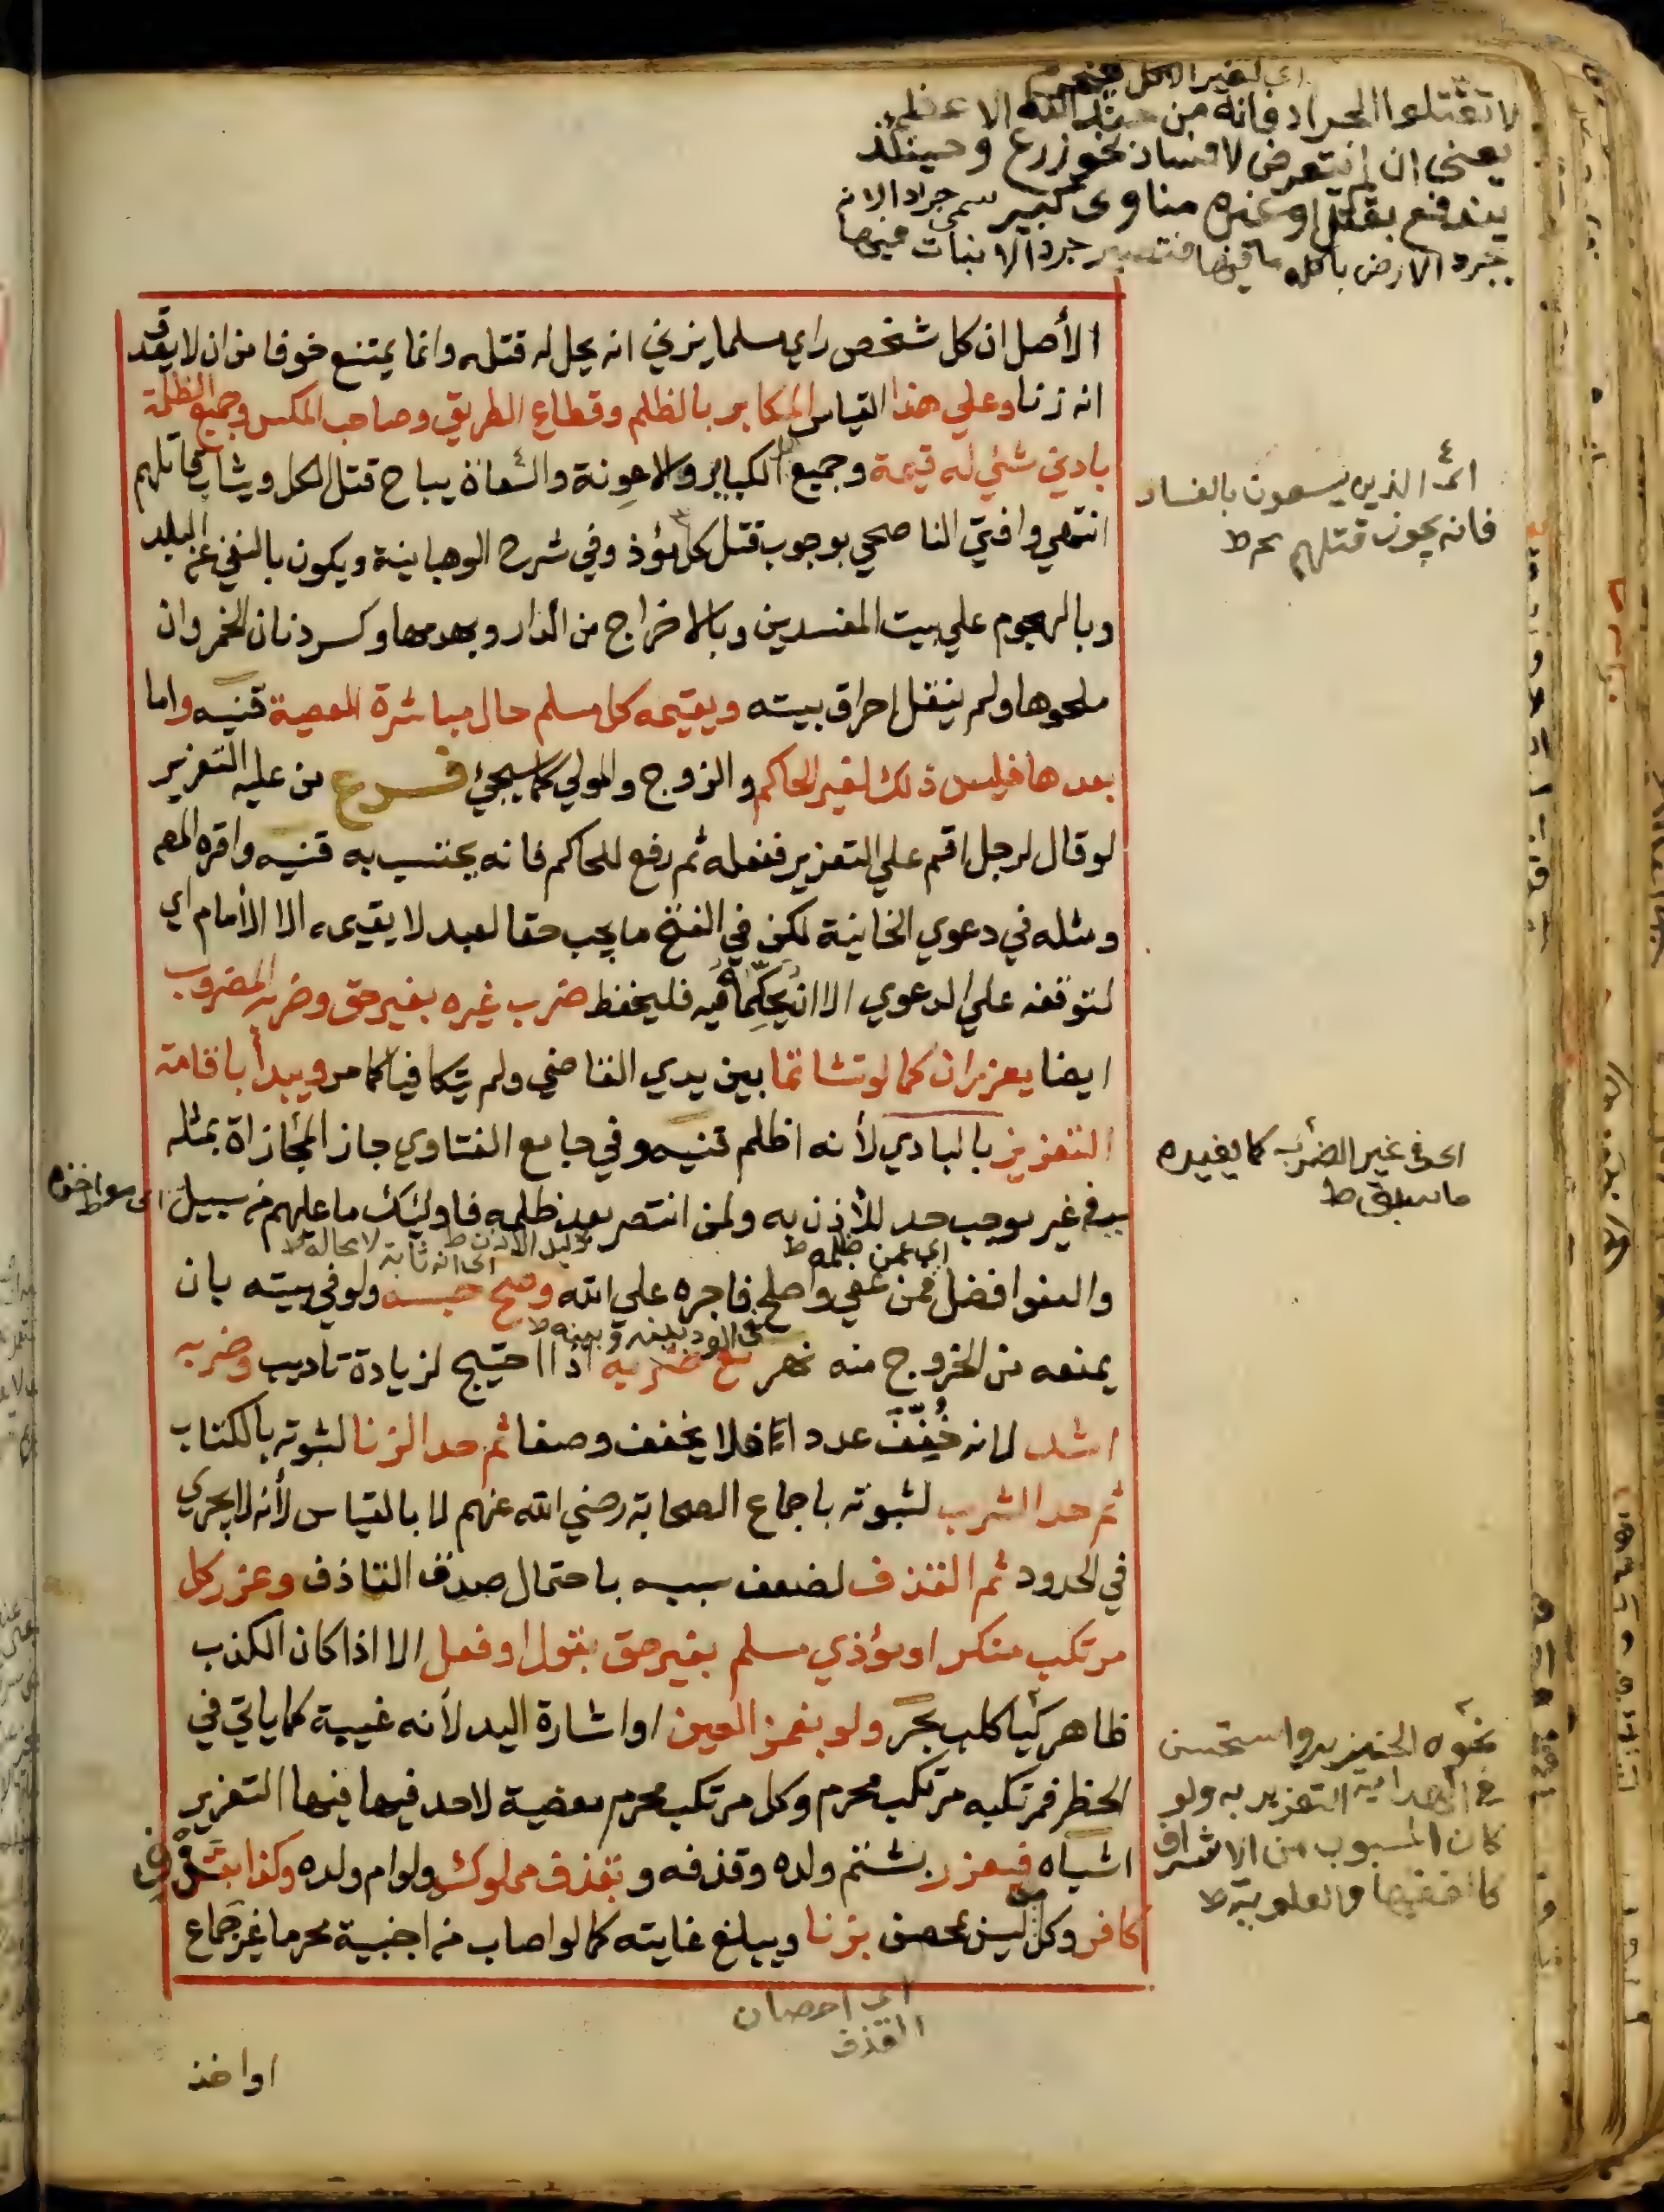 اي لغير الاكل
لا تقتلوا الجراد فانه من جند الله الاعظم
يعني ان لم يتعرض لافساد نحو زرع وحينئذ
يندفع بقتل او غيره مناوي كبير سمي جراد الانه
يجرد الارض باكله ما فيها فتصير جرداء لا نبات فيها
الأصل ان كل شخص راي مسلما يزني انه يحل له قتله وانما يمتنع خوفا من ان لا يصدق
انه زنا وعلي هذا القياس المكابر بالظلم وقطاع الطريق وصاحب المكس وجميع الظلمة
بادني شئي له قيمة وجميع الكباير والاعونة والسعاة يباح قتل الكل ويثاب قاتلهم
انتهي وافتي الناصحي بوجوب قتل كل مؤذ وفي شرح الوهبانية ويكون بالنفي عن البلد
وبالهجوم علي بيت المفسدين وبالاخراج من الدار وبهدمها وكسر دنان الخمر وان
ملحوها ولم ينقل احراق بيته ويقيمه كل مسلم حال مباشرة المعصية قنيه واما
بعدها فليس ذلك لغير الحاكم والزوج والمولي كما سيجئ فرع من عليه التعزير
لو قال لرجل اقم علي التعزير ففعله ثم رفع للحاكم فانه يحتسب به قنيه واقره المص
ومثله في دعوي الخانية لكن في الفتح ما يجب حقا لعبد لا يقيمه الا الأمام اي
لتوقفه علي الدعوي الا ان يحكّما فيه فليحفظ ضرب غيره بغير حق وضربه المضروب
ايضا يعزران كما لو تشاتما بين يدي القاضي ولم يتكافيا كما مر ويبدأ باقامة
التعزير بالبادي لأنه اظلم قنيه وفي جامع الفتاوي جاز المجازاة بمثله
في غير موجب حد للأذن به ولمن انتصر بعد ظلمه فاوليئك ما عليهم من سبيل
دليل الاذن ط
اي عمن ظلمه ط
اي انه ثابت لا محالة ط
والعفو افضل فمن عفي واصلح فاجره علي الله وصح حبسه ولو في بيته بان
يمنعه من الخروج منه نهر مع ضربه اذا احتيج لزيادة تاديب وضربه
اشد لانه خُفِّفَ عددا فلا يخفف وصفا ثم حد الزنا لثبوته بالكتاب
ثم حد الشرب لثبوته باجماع الصحابة رضي الله عنهم لا بالقياس لأنه لا يجري
في الحدود ثم القذف لضعف سببه باحتمال صدق القاذف وعزر كل
مرتكب منكر او مؤذي مسلم بغير حق بقول او فعل الا اذا كان الكذب
ظاهر كيا كلب بحر ولو بغمز العين او اشارة اليد لأنه غيبة كما ياتي في
الحظر فمرتكبه مرتكب محرم وكل مرتكب محرم معصية لا حد فيها فيها التعزير
اشباه فيعزر بشتم ولده وقذفه وبقذف مملوك ولو ام ولده وكذا بقذف
كافر وكل من ليس بمحصن بزنا ويبلغ غايته كما لو اصاب من اجنبية محرما غير جماع
اي احصان
القذف
او اخذ
اي الذين يسعون بالفساد
فانه يجوز قتلهم ح ط
اي في غير الضرب كما يفيده
ما سبق ط
اي مواخذة ط
نحوه الخنزير واستحسن
في الهداية التعزير به ولو
كان المسبوب من الاشراف
كالفقيها والعلوية ط